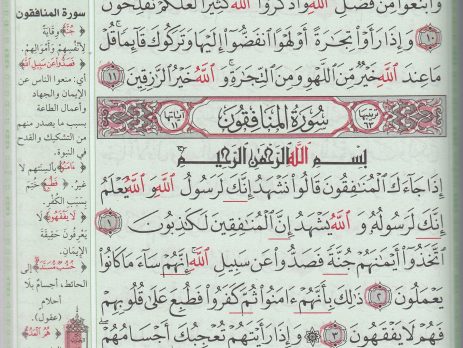 وَٱبْتَغُوا۟ مِن فَضْلِ ٱللَّهِ وَٱذْكُرُوا۟ ٱللَّهَ كَثِيرًا لَّعَلَّكُمْ تُفْلِحُونَ
١٠ وَإِذَا رَأَوْا۟ تِجَٰرَةً أَوْ لَهْوًا ٱنفَضُّوٓا۟ إِلَيْهَا وَتَرَكُوكَ قَآئِمًا ۚ قُلْ
مَا عِندَ ٱللَّهِ خَيْرٌ مِّنَ ٱللَّهْوِ وَمِنَ ٱلتِّجَٰرَةِ ۚ وَٱللَّهُ خَيْرُ ٱلرَّٰزِقِينَ ١١
ترتيبها ٦٣ سُورَةُ المُنَافِقُونَ آياتها ١١
بِسْمِ ٱللَّهِ ٱلرَّحْمَٰنِ ٱلرَّحِيمِ
إِذَا جَآءَكَ ٱلْمُنَٰفِقُونَ قَالُوا۟ نَشْهَدُ إِنَّكَ لَرَسُولُ ٱللَّهِ ۗ وَٱللَّهُ يَعْلَمُ
إِنَّكَ لَرَسُولُهُۥ وَٱللَّهُ يَشْهَدُ إِنَّ ٱلْمُنَٰفِقِينَ لَكَٰذِبُونَ ١
ٱتَّخَذُوٓا۟ أَيْمَٰنَهُمْ جُنَّةً فَصَدُّوا۟ عَن سَبِيلِ ٱللَّهِ ۚ إِنَّهُمْ سَآءَ مَا كَانُوا۟
يَعْمَلُونَ ٢ ذَٰلِكَ بِأَنَّهُمْ ءَامَنُوا۟ ثُمَّ كَفَرُوا۟ فَطُبِعَ عَلَىٰ قُلُوبِهِمْ
فَهُمْ لَا يَفْقَهُونَ ٣ ۞ وَإِذَا رَأَيْتَهُمْ تُعْجِبُكَ أَجْسَامُهُمْ ۖ
سورة المنافقون
﴿جُنَّةً﴾ وقاية
لأنفسهم وأموالهم.
﴿فَصَدُّوا عَن سَبِيلِ اللَّهِ﴾
أي: منعوا الناس عن
الإيمان والجهاد
وأعمال الطاعة
بسبب ما يصدر منهم
من التشكيك والقدح
في النبوة.
﴿ءَامَنُوا﴾ بألسنتهم لا
غير. ﴿فَطُبِعَ﴾ خُتِمَ
بسبب الكفر.
﴿لَا يَفْقَهُونَ﴾ لا
يعرفون حقيقة
الإيمان.
﴿خُشُبٌ مُّسَنَّدَةٌ﴾ إلى
الحائط، أجسام بلا
أحلام
(عقول).
﴿هُمُ الْعَدُوُّ﴾